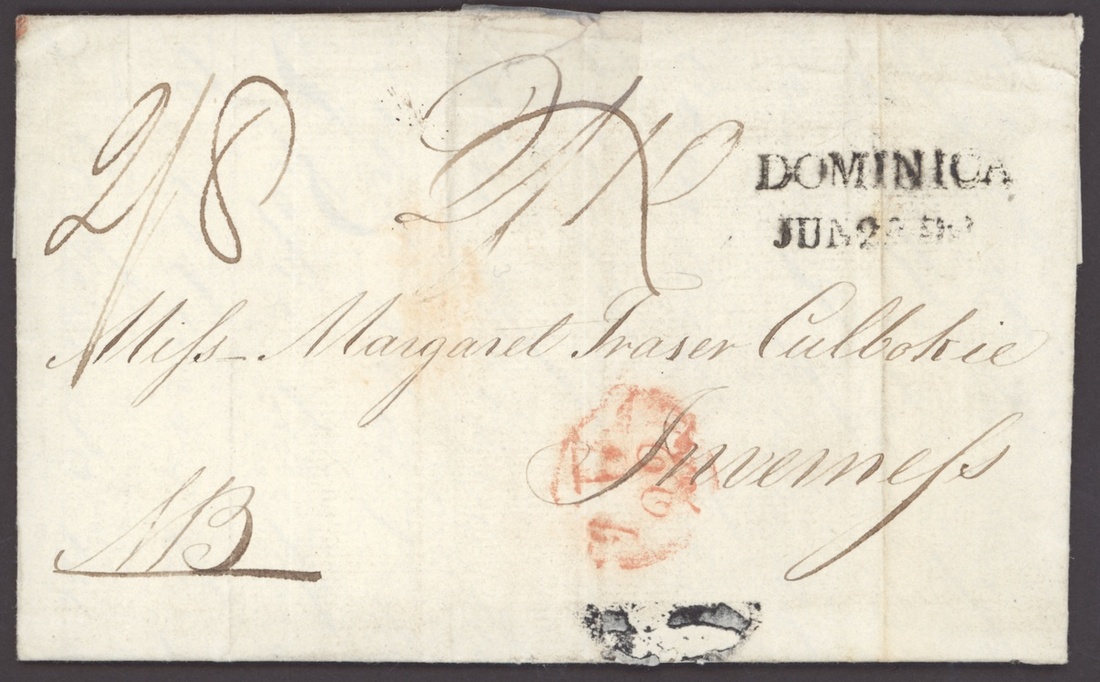 2/8
DOMINICA
JUN
Miſs Margaret Fraser Culbokie
Inverneſs
NB